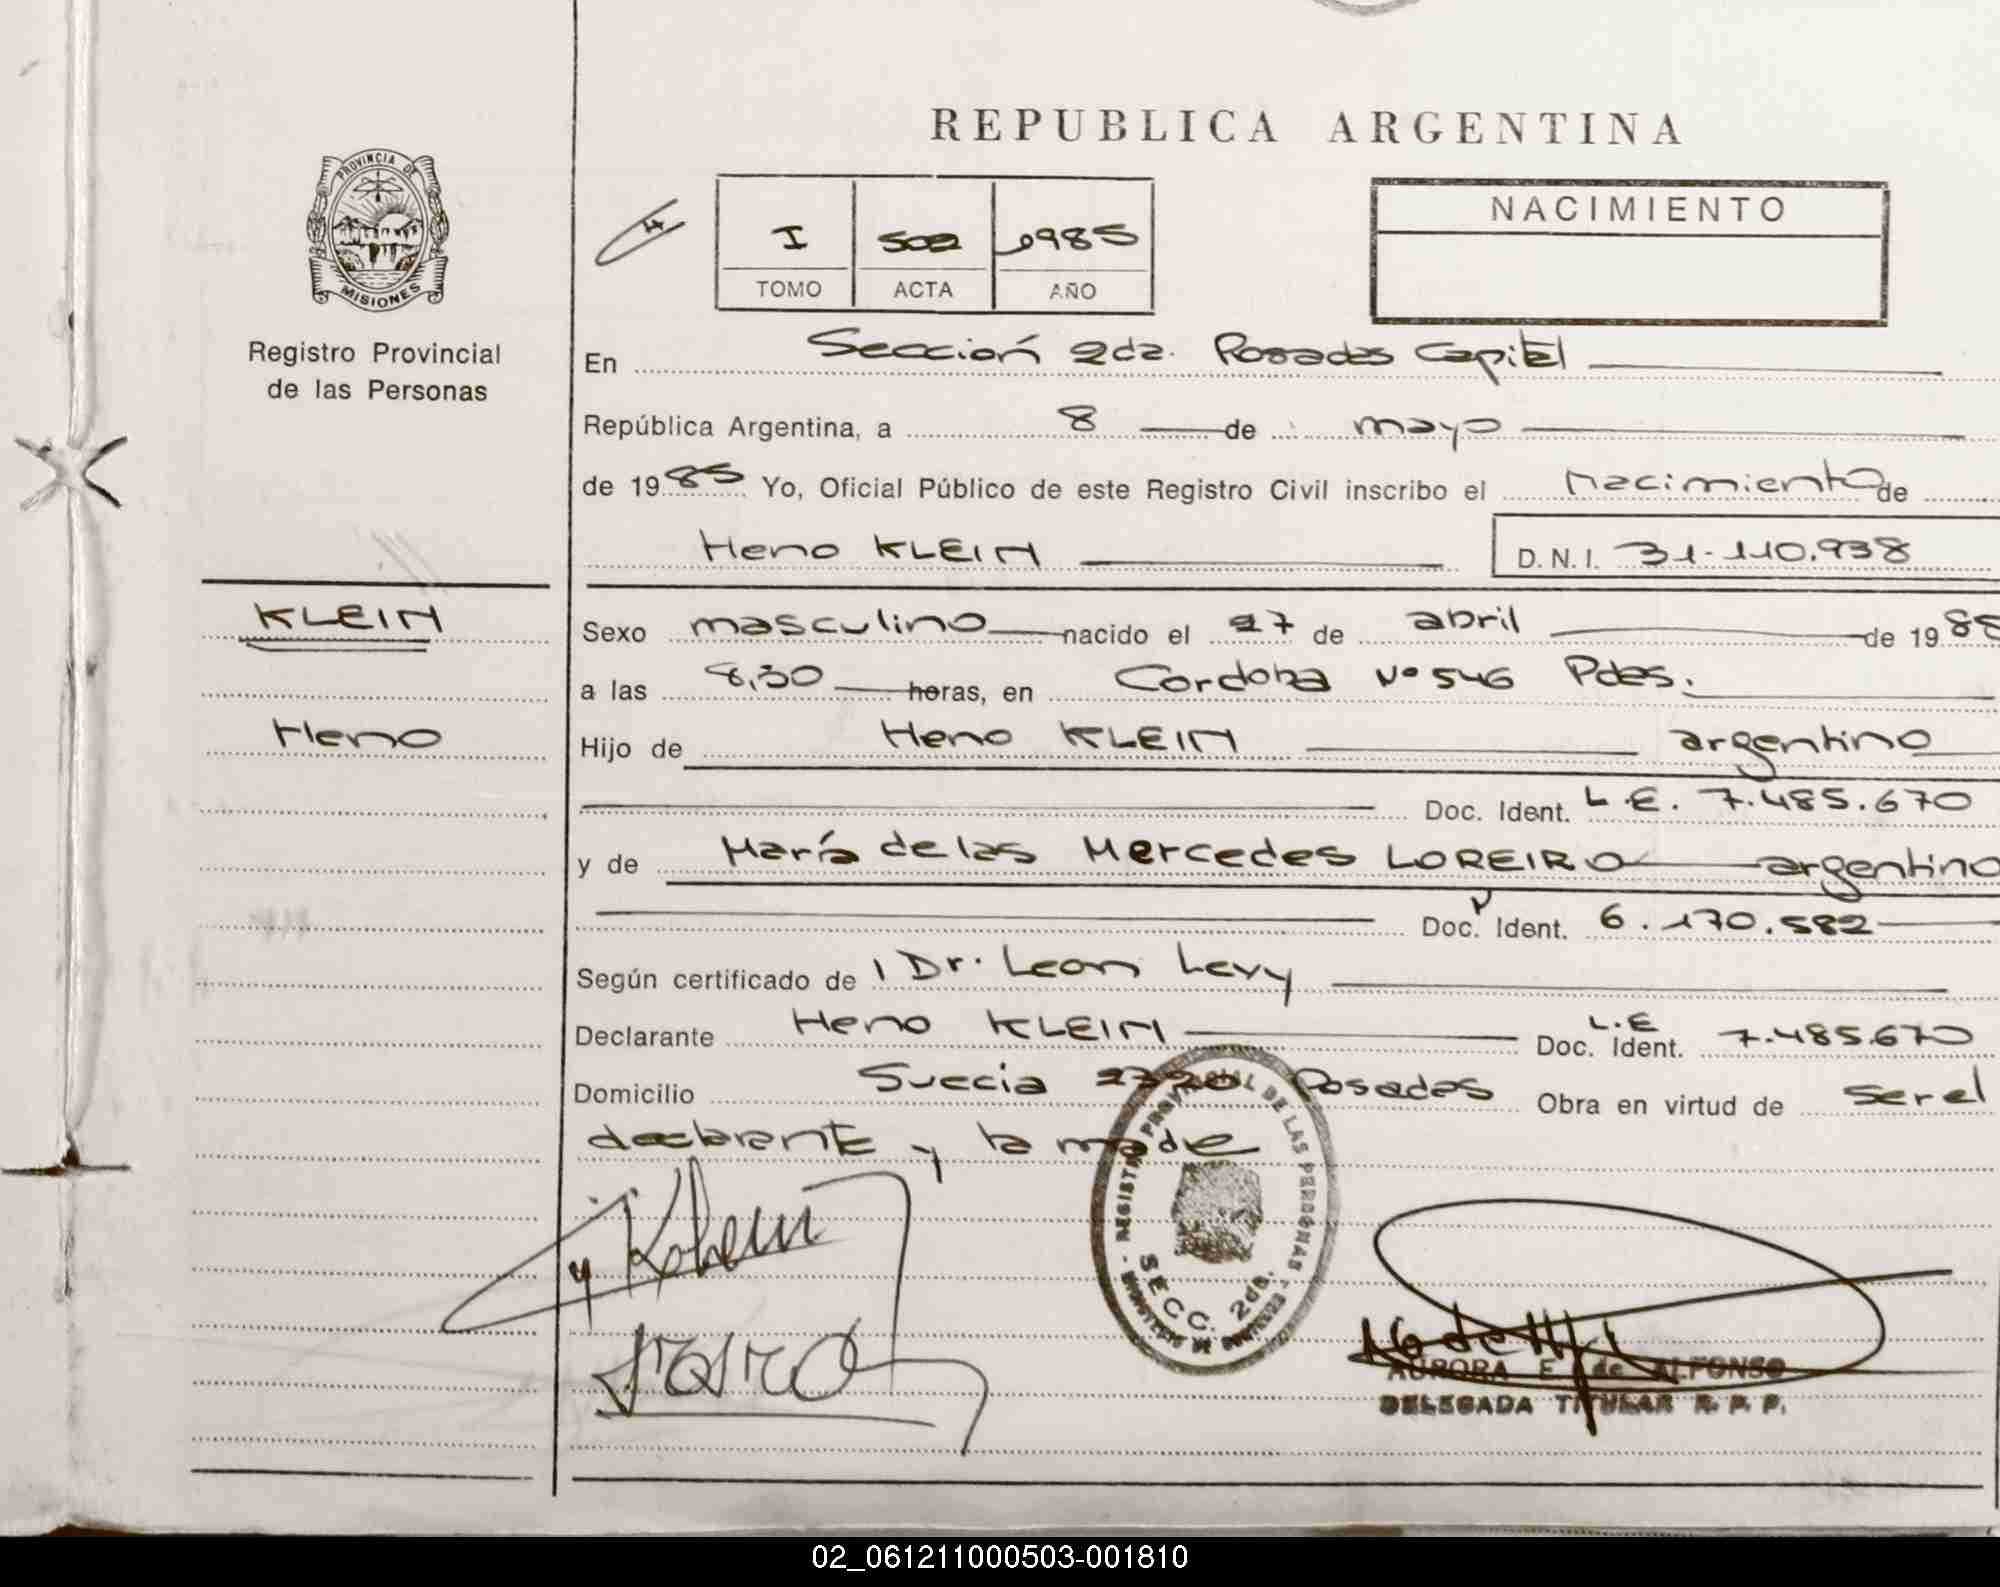 PROVINCIA DE
MISIONES
Registro Provincial
de las Personas
KLEIN
Heno
REPUBLICA ARGENTINA
I 502 1985
TOMO ACTA AÑO
NACIMIENTO
En Sección 2da. Posadas Capital
República Argentina, a 8 de mayo
de 1985 Yo, Oficial Público de este Registro Civil inscribo el Nacimiento de
Heno KLEIN D.N.I. 31.110.938
Sexo masculino nacido el 27 de abril de 1985
a las 8,30 horas, en Cordoba Nº 546 Pdas.
Hijo de Heno KLEIN argentino
Doc. Ident. L.E. 7.485.670
y de María de las Mercedes LOREIRO argentino
Doc. Ident. 6.170.582
Según certificado de Dr. Leon Levy
Declarante Heno KLEIN L.E Doc. Ident. 7.485.670
Domicilio Suecia 2720 Posadas Obra en virtud de ser el
declarante y la madre
REGISTRO PROVINCIAL DE LAS PERSONAS
SECC. 2da.
AURORA E. de ALFONSO
DELEGADA TITULAR R. P. P.
02_061211000503-001810